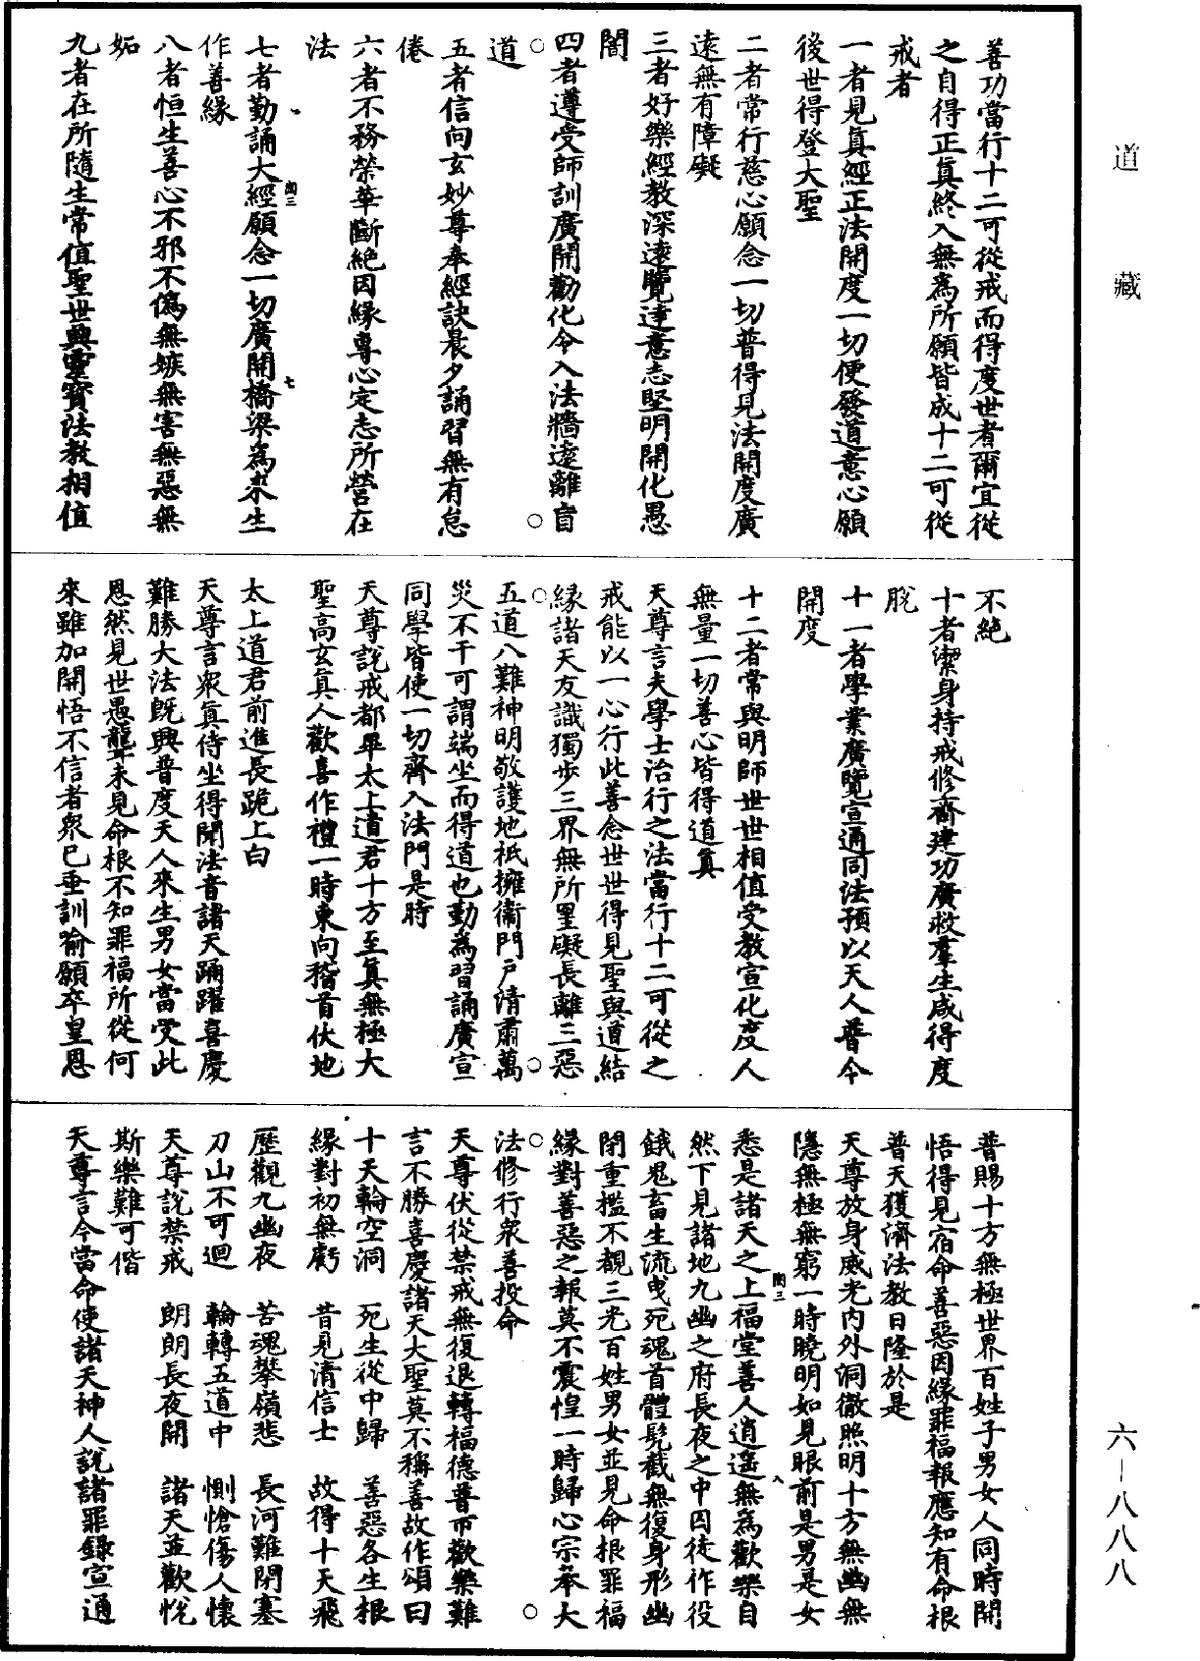 道藏
六—八八八
善功當行十二可從戒而得度世者爾宜從
之自得正真終入無為所願皆成十二可從
戒者
一者見真經正法開度一切便發道意心願
後世得登大聖
二者常行慈心願念一切普得見法開度廣
遠無有障礙
三者好樂經教深遠覽達意志堅明開化愚
闇
四者遵受師訓廣開勸化令入法牆遠離盲
道
五者信向玄妙尊奉經訣晨夕誦習無有怠
倦
六者不務榮華斷絶因緣專心定志所營在
法
七者勤誦大經願念一切廣開橋梁為來生
作善緣
陶三
七
八者恒生善心不邪不偽無嫉無害無惡無
妬
九者在所隨生常值聖世與靈寳法教相值
不絶
十者潔身持戒修齋建功廣救羣生咸得度
脫
十一者學業廣覽宣通同法預以天人普令
開度
十二者常與明師世世相值受教宣化度人
無量一切善心皆得道真
天尊言夫學士治行之法當行十二可從之
戒能以一心行此善念世世得見聖與道結
緣諸天友識獨步三界無所罣礙長離三惡
五道八難神明敬護地祇擁衞門戶清肅萬
災不干可謂端坐而得道也勤為習誦廣宣
同學皆使一切齊入法門是時
天尊說戒都畢太上道君十方至真無極大
聖高玄真人歡喜作禮一時東向稽首伏地
太上道君前進長跪上曰
天尊言衆真侍坐得聞法音諸天踊躍喜慶
難勝大法旣興普度天人來生男女當受此
恩然見世愚聾未見命根不知罪福所從何
來雖加開悟不信者衆已垂訓喻願卒皇恩
普賜十方無極世界百姓子男女人同時開
悟得見宿命善惡因緣罪福報應知有命根
普天獲濟法教日隆於是
天尊放身威光內外洞徹照明十方無幽無
隱無極無窮一時曉明如見眼前是男是女
陶三
八
悉是諸天之上福堂善人逍遥無為歡樂自
然下見諸地九幽之府長夜之中囚徒作役
餓鬼畜生流曳死魂首體髡截無復身形幽
閉重檻不覩三光百姓男女並見命根罪福
緣對善惡之報莫不震惶一時歸心宗奉大
法修行衆善投命
天尊伏從禁戒無復退轉福德普帀歡樂難
言不勝喜慶諸天大聖莫不稱善故作頌曰
十天輪空洞　死生從中歸　善惡各生根
緣對初無虧　昔見清信士　故得十天飛
歷觀九幽夜　苦魂攀嶺悲　長河難閉塞
刀山不可迴　輪轉五道中　惻愴傷人懷
天尊說禁戒　朗朗長夜開　諸天並歡悅
斯樂難可偕
天尊言今當命使諸天神人說諸罪錄宣通